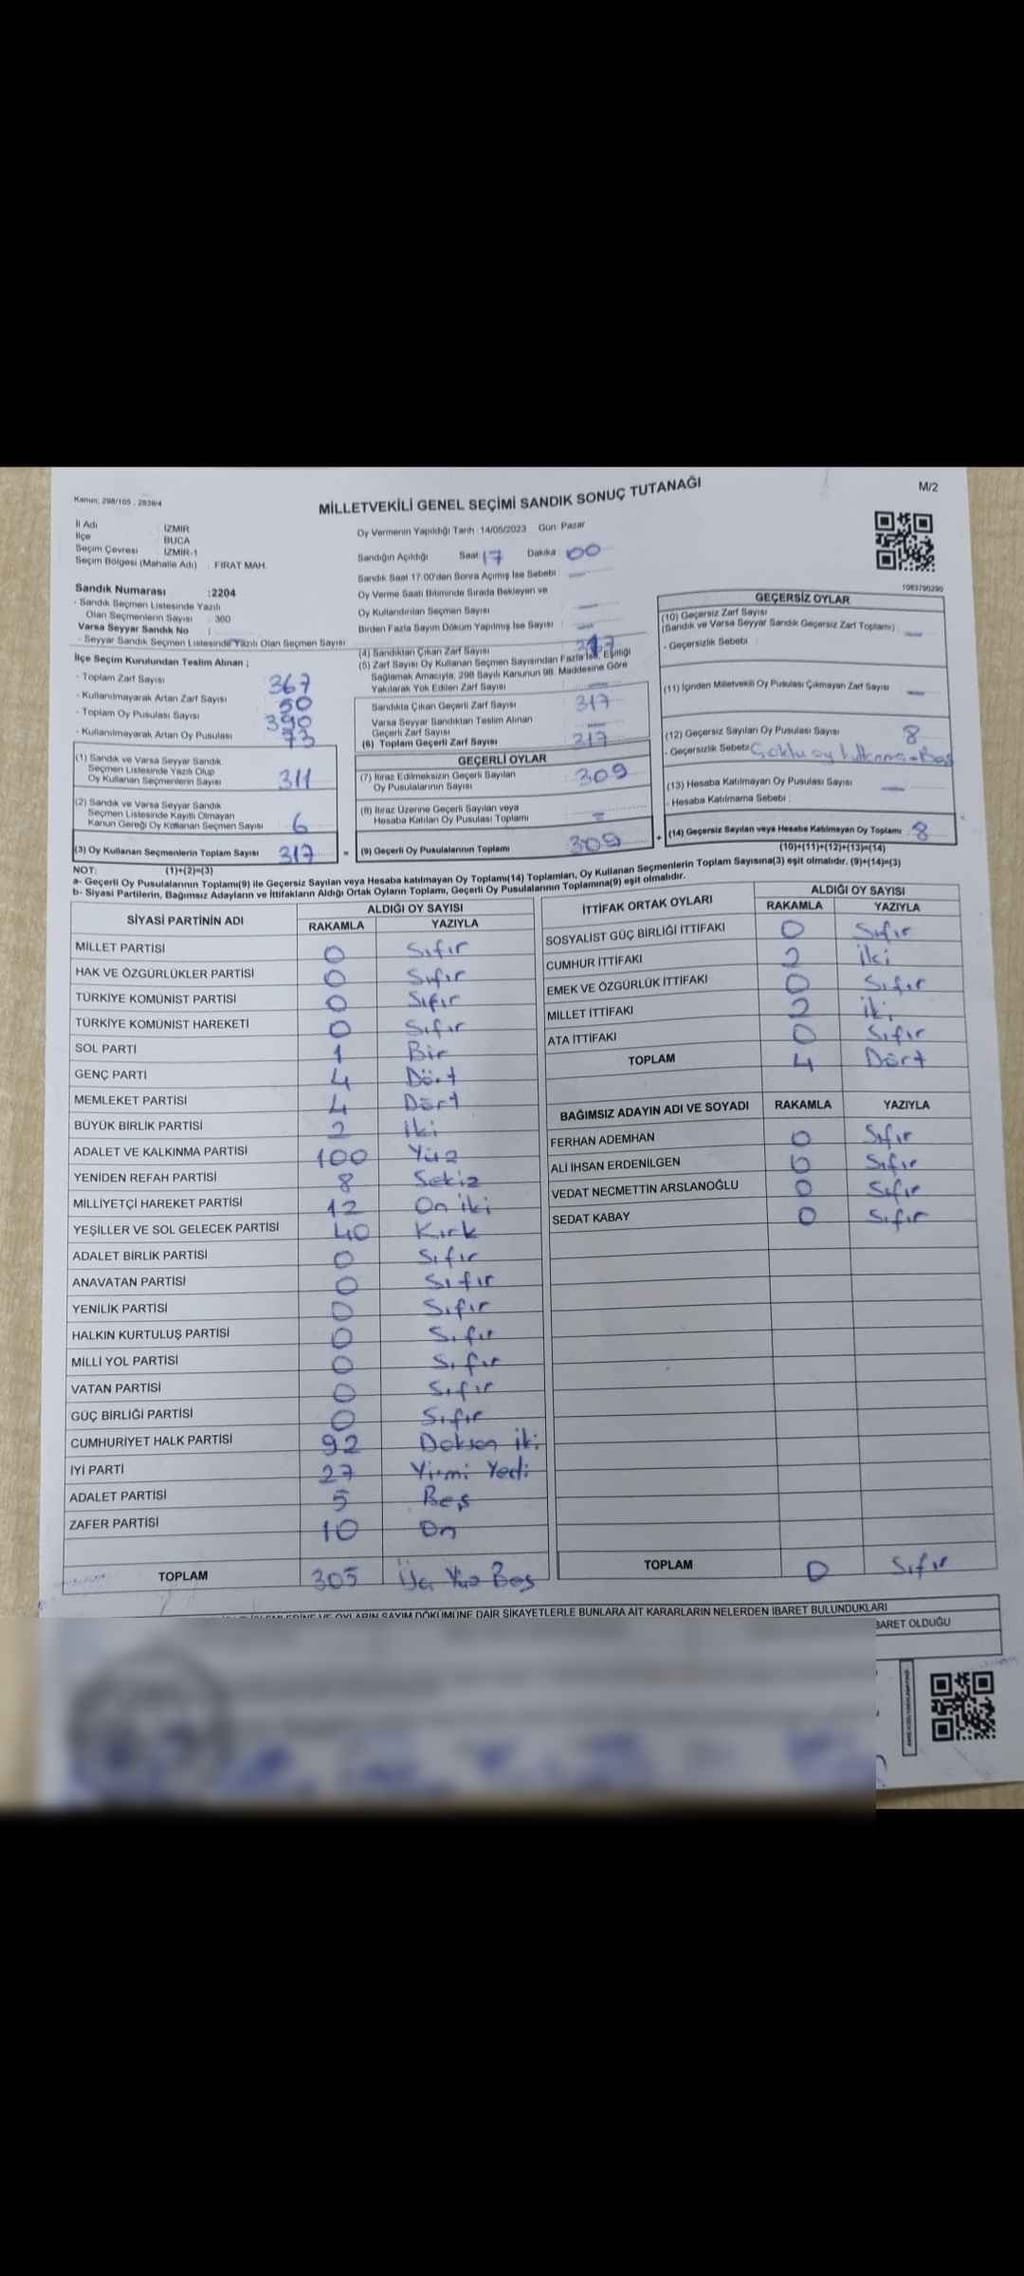 Kanun: 298/105 , 2839/4
MİLLETVEKİLİ GENEL SEÇİMİ SANDIK SONUÇ TUTANAĞI
M/2
İl Adı : İZMİR
İlçe : BUCA
Seçim Çevresi : İZMİR-1
Seçim Bölgesi (Mahalle Adı) : FIRAT MAH.
Oy Vermenin Yapıldığı Tarih : 14/05/2023 Gün: Pazar
Sandığın Açıldığı Saat: 17 Dakika: 00
Sandık Saat 17.00'den Sonra Açılmış İse Sebebi :
Oy Verme Saati Bitiminde Sırada Bekleyen ve
Oy Kullandırılan Seçmen Sayısı
Birden Fazla Sayım Döküm Yapılmış İse Sayısı :
Sandık Numarası :2204
- Sandık Seçmen Listesinde Yazılı
Olan Seçmenlerin Sayısı : 360
Varsa Seyyar Sandık No :
- Seyyar Sandık Seçmen Listesinde Yazılı Olan Seçmen Sayısı :
İlçe Seçim Kurulundan Teslim Alınan ;
- Toplam Zarf Sayısı 367
- Kullanılmayarak Artan Zarf Sayısı 50
- Toplam Oy Pusulası Sayısı 390
- Kullanılmayarak Artan Oy Pusulası 73
(1) Sandık ve Varsa Seyyar Sandık
Seçmen Listesinde Yazılı Olup
Oy Kullanan Seçmenlerin Sayısı 311
(2) Sandık ve Varsa Seyyar Sandık
Seçmen Listesinde Kayıtlı Olmayan
Kanun Gereği Oy Kullanan Seçmen Sayısı 6
(3) Oy Kullanan Seçmenlerin Toplam Sayısı 317
(1)+(2)=(3)
(4) Sandıktan Çıkan Zarf Sayısı 317
(5) Zarf Sayısı Oy Kullanan Seçmen Sayısından Fazla İse, Eşitliği
Sağlamak Amacıyla, 298 Sayılı Kanunun 98. Maddesine Göre
Yakılarak Yok Edilen Zarf Sayısı
Sandıkta Çıkan Geçerli Zarf Sayısı 317
Varsa Seyyar Sandıktan Teslim Alınan
Geçerli Zarf Sayısı
(6) Toplam Geçerli Zarf Sayısı 317
GEÇERLİ OYLAR
(7) İtiraz Edilmeksizin Geçerli Sayılan
Oy Pusulalarının Sayısı 309
(8) İtiraz Üzerine Geçerli Sayılan veya
Hesaba Katılan Oy Pusulası Toplamı
= (9) Geçerli Oy Pusulalarının Toplamı 309
1063790290
GEÇERSİZ OYLAR
(10) Geçersiz Zarf Sayısı
(Sandık ve Varsa Seyyar Sandık Geçersiz Zarf Toplamı) :
- Geçersizlik Sebebi :
(11) İçinden Milletvekili Oy Pusulası Çıkmayan Zarf Sayısı
(12) Geçersiz Sayılan Oy Pusulası Sayısı 8
- Geçersizlik Sebebi: Çoklu oy
(13) Hesaba Katılmayan Oy Pusulası Sayısı
- Hesaba Katılmama Sebebi :
+ (14) Geçersiz Sayılan veya Hesaba Katılmayan Oy Toplamı 8
(10)+(11)+(12)+(13)=(14)
NOT:
a- Geçerli Oy Pusulalarının Toplamı(9) ile Geçersiz Sayılan veya Hesaba katılmayan Oy Toplamı(14) Toplamları, Oy Kullanan Seçmenlerin Toplam Sayısına(3) eşit olmalıdır. (9)+(14)=(3)
b- Siyasi Partilerin, Bağımsız Adayların ve İttifakların Aldığı Ortak Oyların Toplamı, Geçerli Oy Pusulalarının Toplamına(9) eşit olmalıdır.
SİYASİ PARTİNİN ADI
ALDIĞI OY SAYISI
RAKAMLA YAZIYLA
MİLLET PARTİSİ 0 Sıfır
HAK VE ÖZGÜRLÜKLER PARTİSİ 0 Sıfır
TÜRKİYE KOMÜNİST PARTİSİ 0 Sıfır
TÜRKİYE KOMÜNİST HAREKETİ 0 Sıfır
SOL PARTİ 1 Bir
GENÇ PARTİ 4 Dört
MEMLEKET PARTİSİ 4 Dört
BÜYÜK BİRLİK PARTİSİ 2 İki
ADALET VE KALKINMA PARTİSİ 100 Yüz
YENİDEN REFAH PARTİSİ 8 Sekiz
MİLLİYETÇİ HAREKET PARTİSİ 12 On iki
YEŞİLLER VE SOL GELECEK PARTİSİ 40 Kırk
ADALET BİRLİK PARTİSİ 0 Sıfır
ANAVATAN PARTİSİ 0 Sıfır
YENİLİK PARTİSİ 0 Sıfır
HALKIN KURTULUŞ PARTİSİ 0 Sıfır
MİLLİ YOL PARTİSİ 0 Sıfır
VATAN PARTİSİ 0 Sıfır
GÜÇ BİRLİĞİ PARTİSİ 0 Sıfır
CUMHURİYET HALK PARTİSİ 92 Doksan iki
İYİ PARTİ 27 Yirmi Yedi
ADALET PARTİSİ 5 Beş
ZAFER PARTİSİ 10 On
TOPLAM 305 Üç Yüz Beş
İTTİFAK ORTAK OYLARI
ALDIĞI OY SAYISI
RAKAMLA YAZIYLA
SOSYALİST GÜÇ BİRLİĞİ İTTİFAKI 0 Sıfır
CUMHUR İTTİFAKI 2 İki
EMEK VE ÖZGÜRLÜK İTTİFAKI 0 Sıfır
MİLLET İTTİFAKI 2 İki
ATA İTTİFAKI 0 Sıfır
TOPLAM 4 Dört
BAĞIMSIZ ADAYIN ADI VE SOYADI RAKAMLA YAZIYLA
FERHAN ADEMHAN 0 Sıfır
ALİ İHSAN ERDENİLGEN 0 Sıfır
VEDAT NECMETTİN ARSLANOĞLU 0 Sıfır
SEDAT KABAY 0 Sıfır
TOPLAM 0 Sıfır
VE OYLARIN SAYIM DÖKÜMÜNE DAİR ŞİKAYETLERLE BUNLARA AİT KARARLARIN NELERDEN İBARET BULUNDUKLARI
BARET OLDUĞU